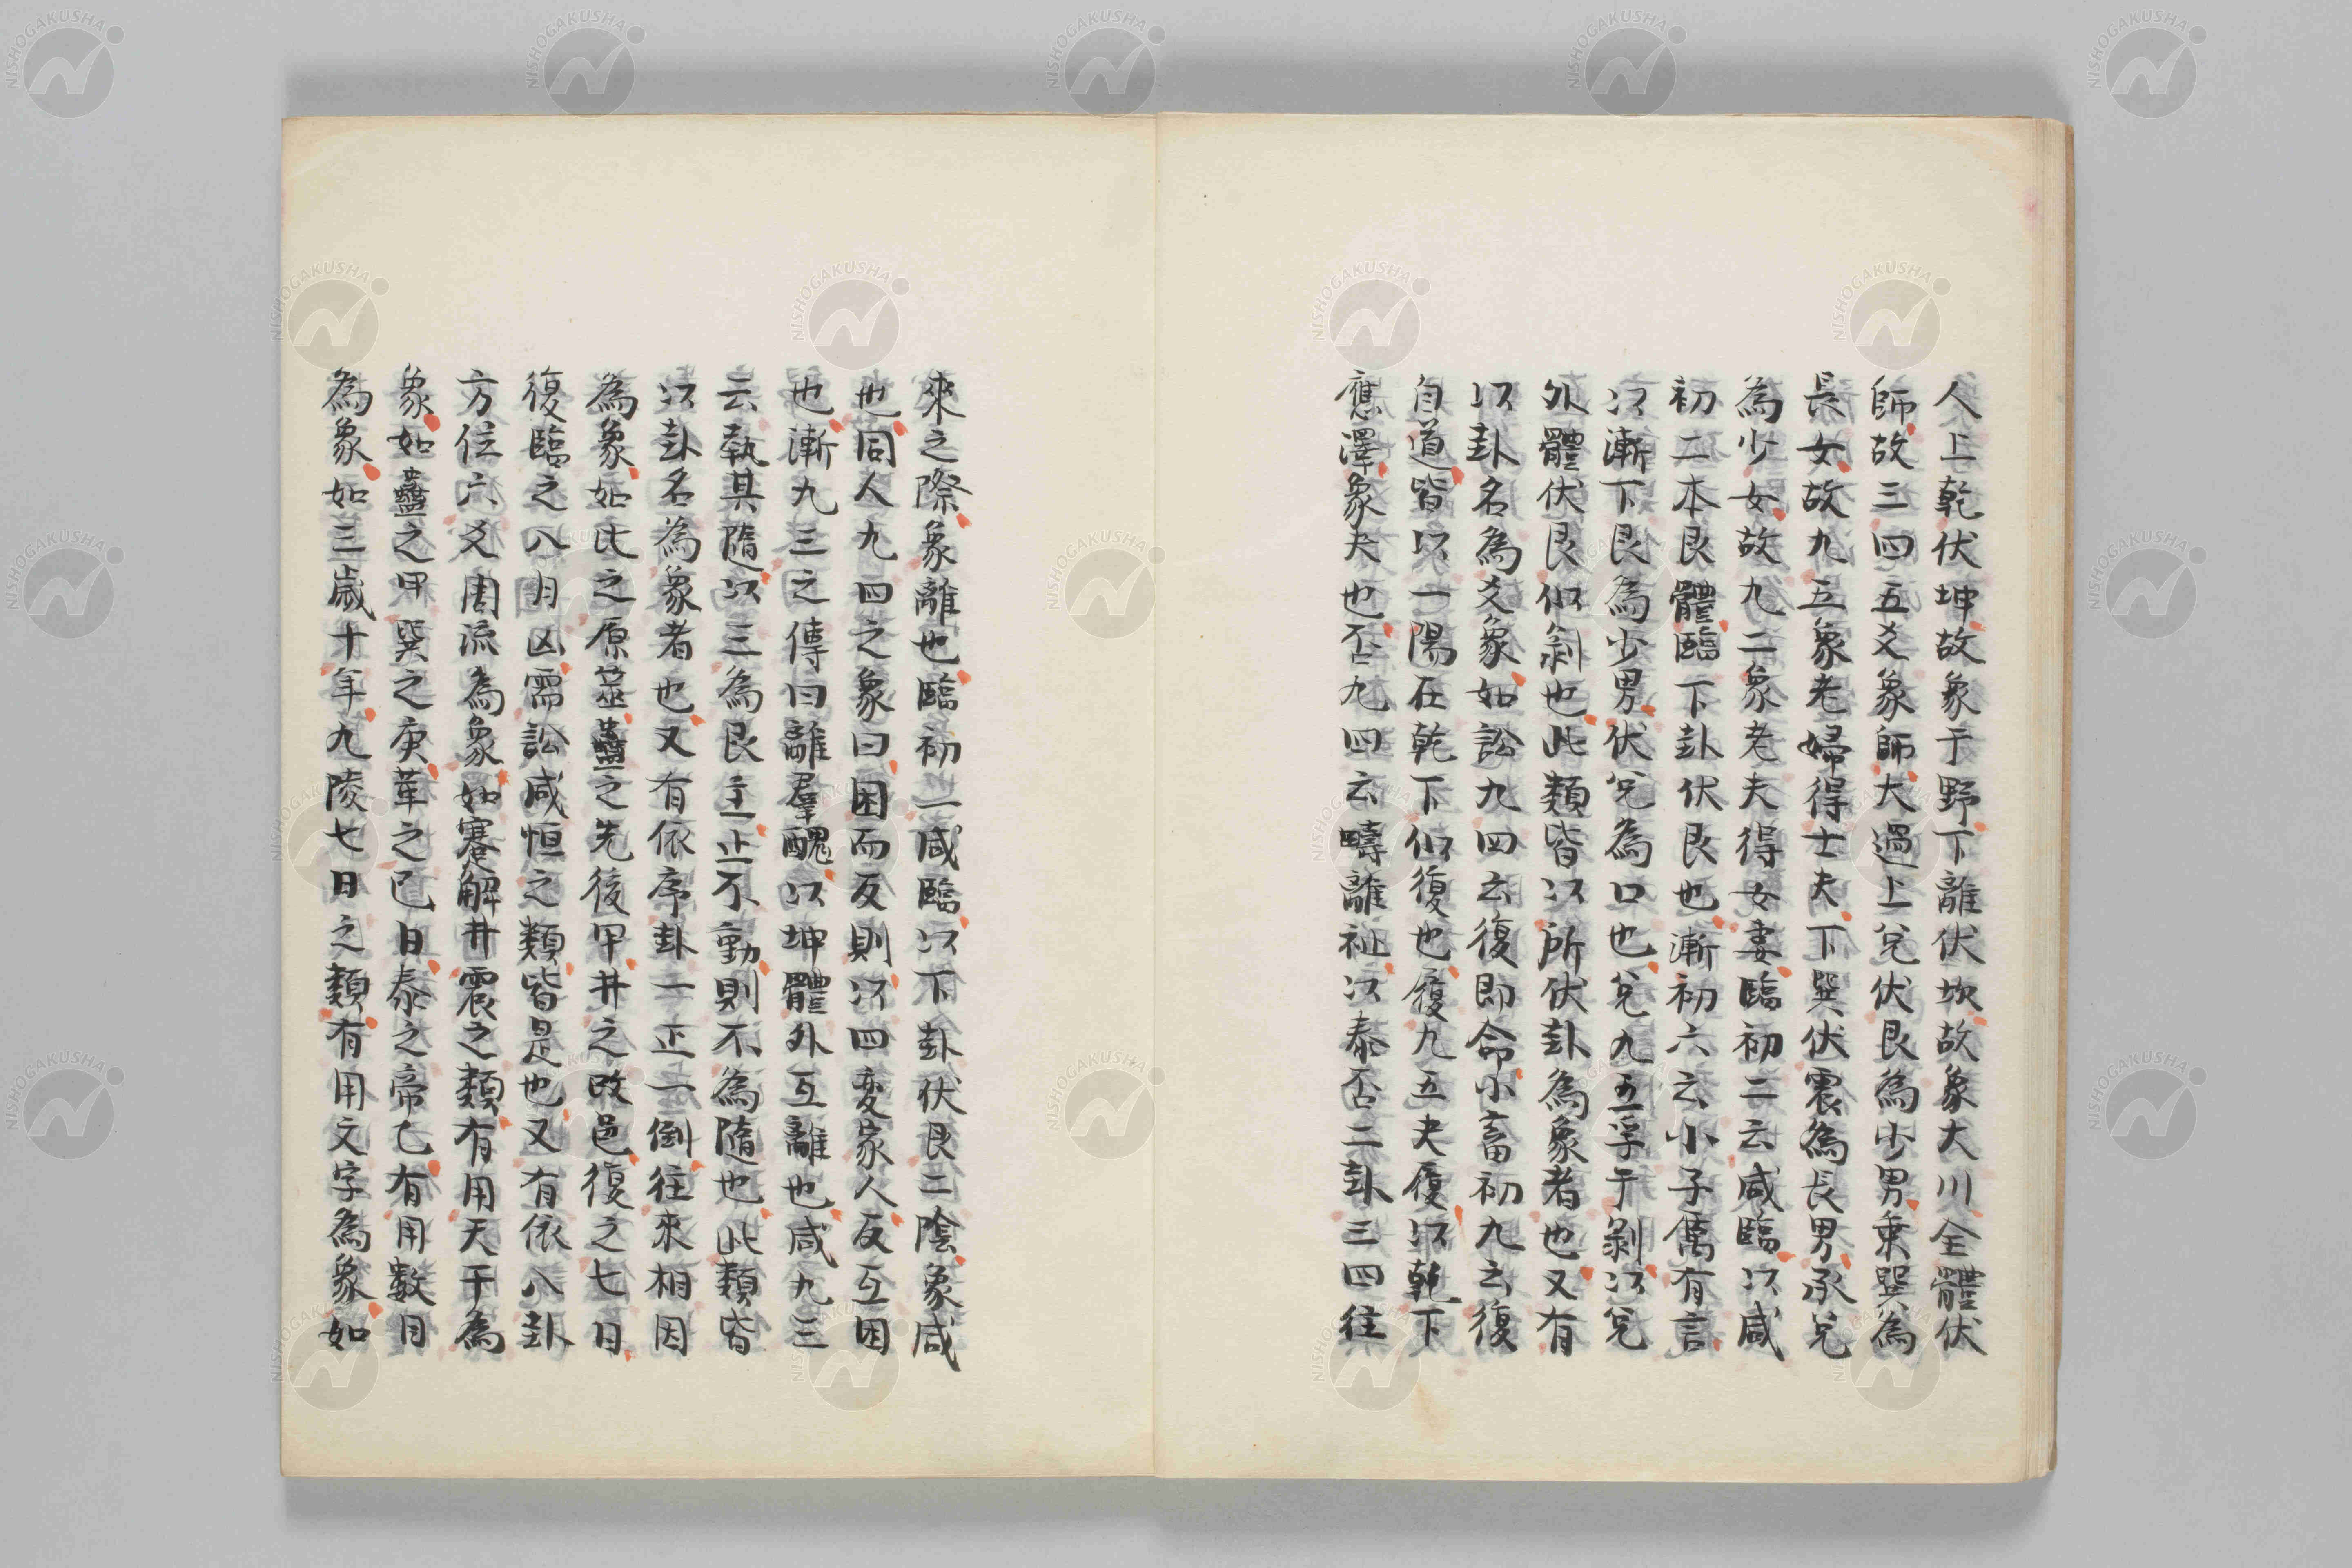 人上乾伏坤故象于野下離伏坎故象大川全體伏
師故三四五爻象師大過上兌伏艮為少男乗巽為
長女故九五象老婦得士夫下巽伏震為長男承兌
為少女故九二象老夫得女妻臨初二云咸臨以咸
初二本艮體臨下卦伏艮也漸初六云小子厲有言
以漸下艮為少男伏兌為口也兌九五孚于剝以兌
外體伏艮似剝也此類皆以所伏卦為象者也又有
以卦名為爻象如訟九四云復即命小畜初九云復
自道皆以一陽在乾下似復也履九五夬履以乾下
應澤象夬也否九四云疇離祉以泰否二卦三四往
來之際象離也臨初二咸臨以下卦伏艮二陰象咸
也同人九四之象曰困而反則以四変家人反互困
也漸九三之傳曰離羣醜以坤體外互離也咸九三
云執其隨以三為艮主止不動則不為隨也此類皆
以卦名為象者也又有依序卦一正一倒往來相因
為象如比之原筮蠱之先後甲井之改邑復之七日
復臨之八月凶需訟咸恒之類皆是也又有依八卦
方位六爻周流為象如蹇解井震之類有用天干為
象如蠱之甲巽之庚革之巳日泰之帝乙有用數目
為象如三歲十年九陵七日之類有用文字為象如
NISHOGAKUSHA